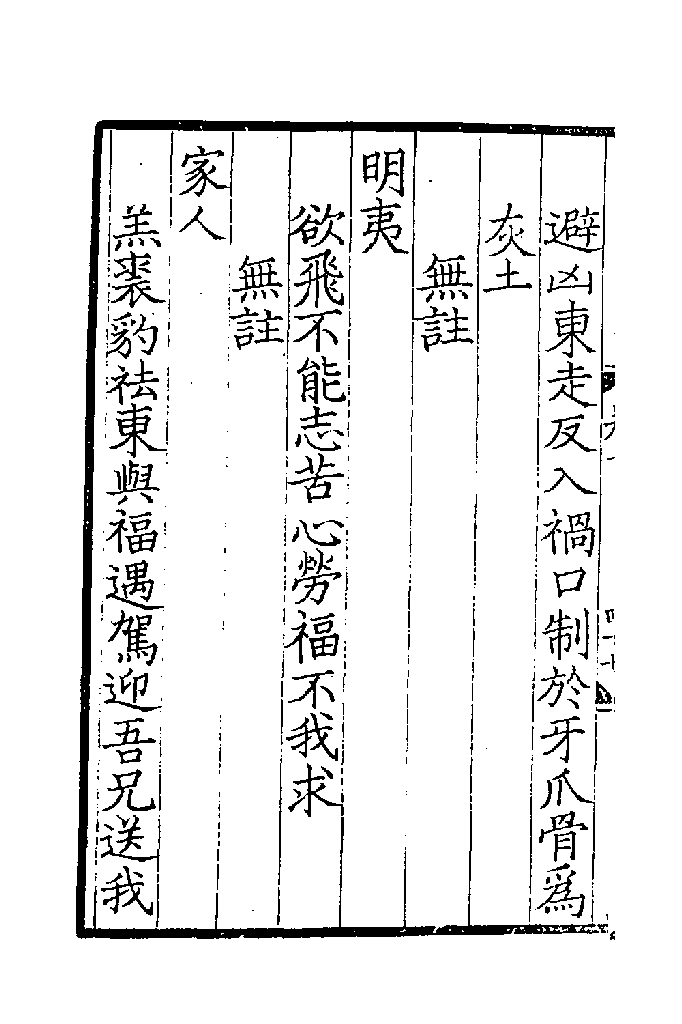 避凶東走反入禍口制於牙爪骨爲
灰土
無註
明夷
欲飛不能志苦心勞福不我求
無註
家人
羔裘豹祛東與福遇駕迎吾兄送我